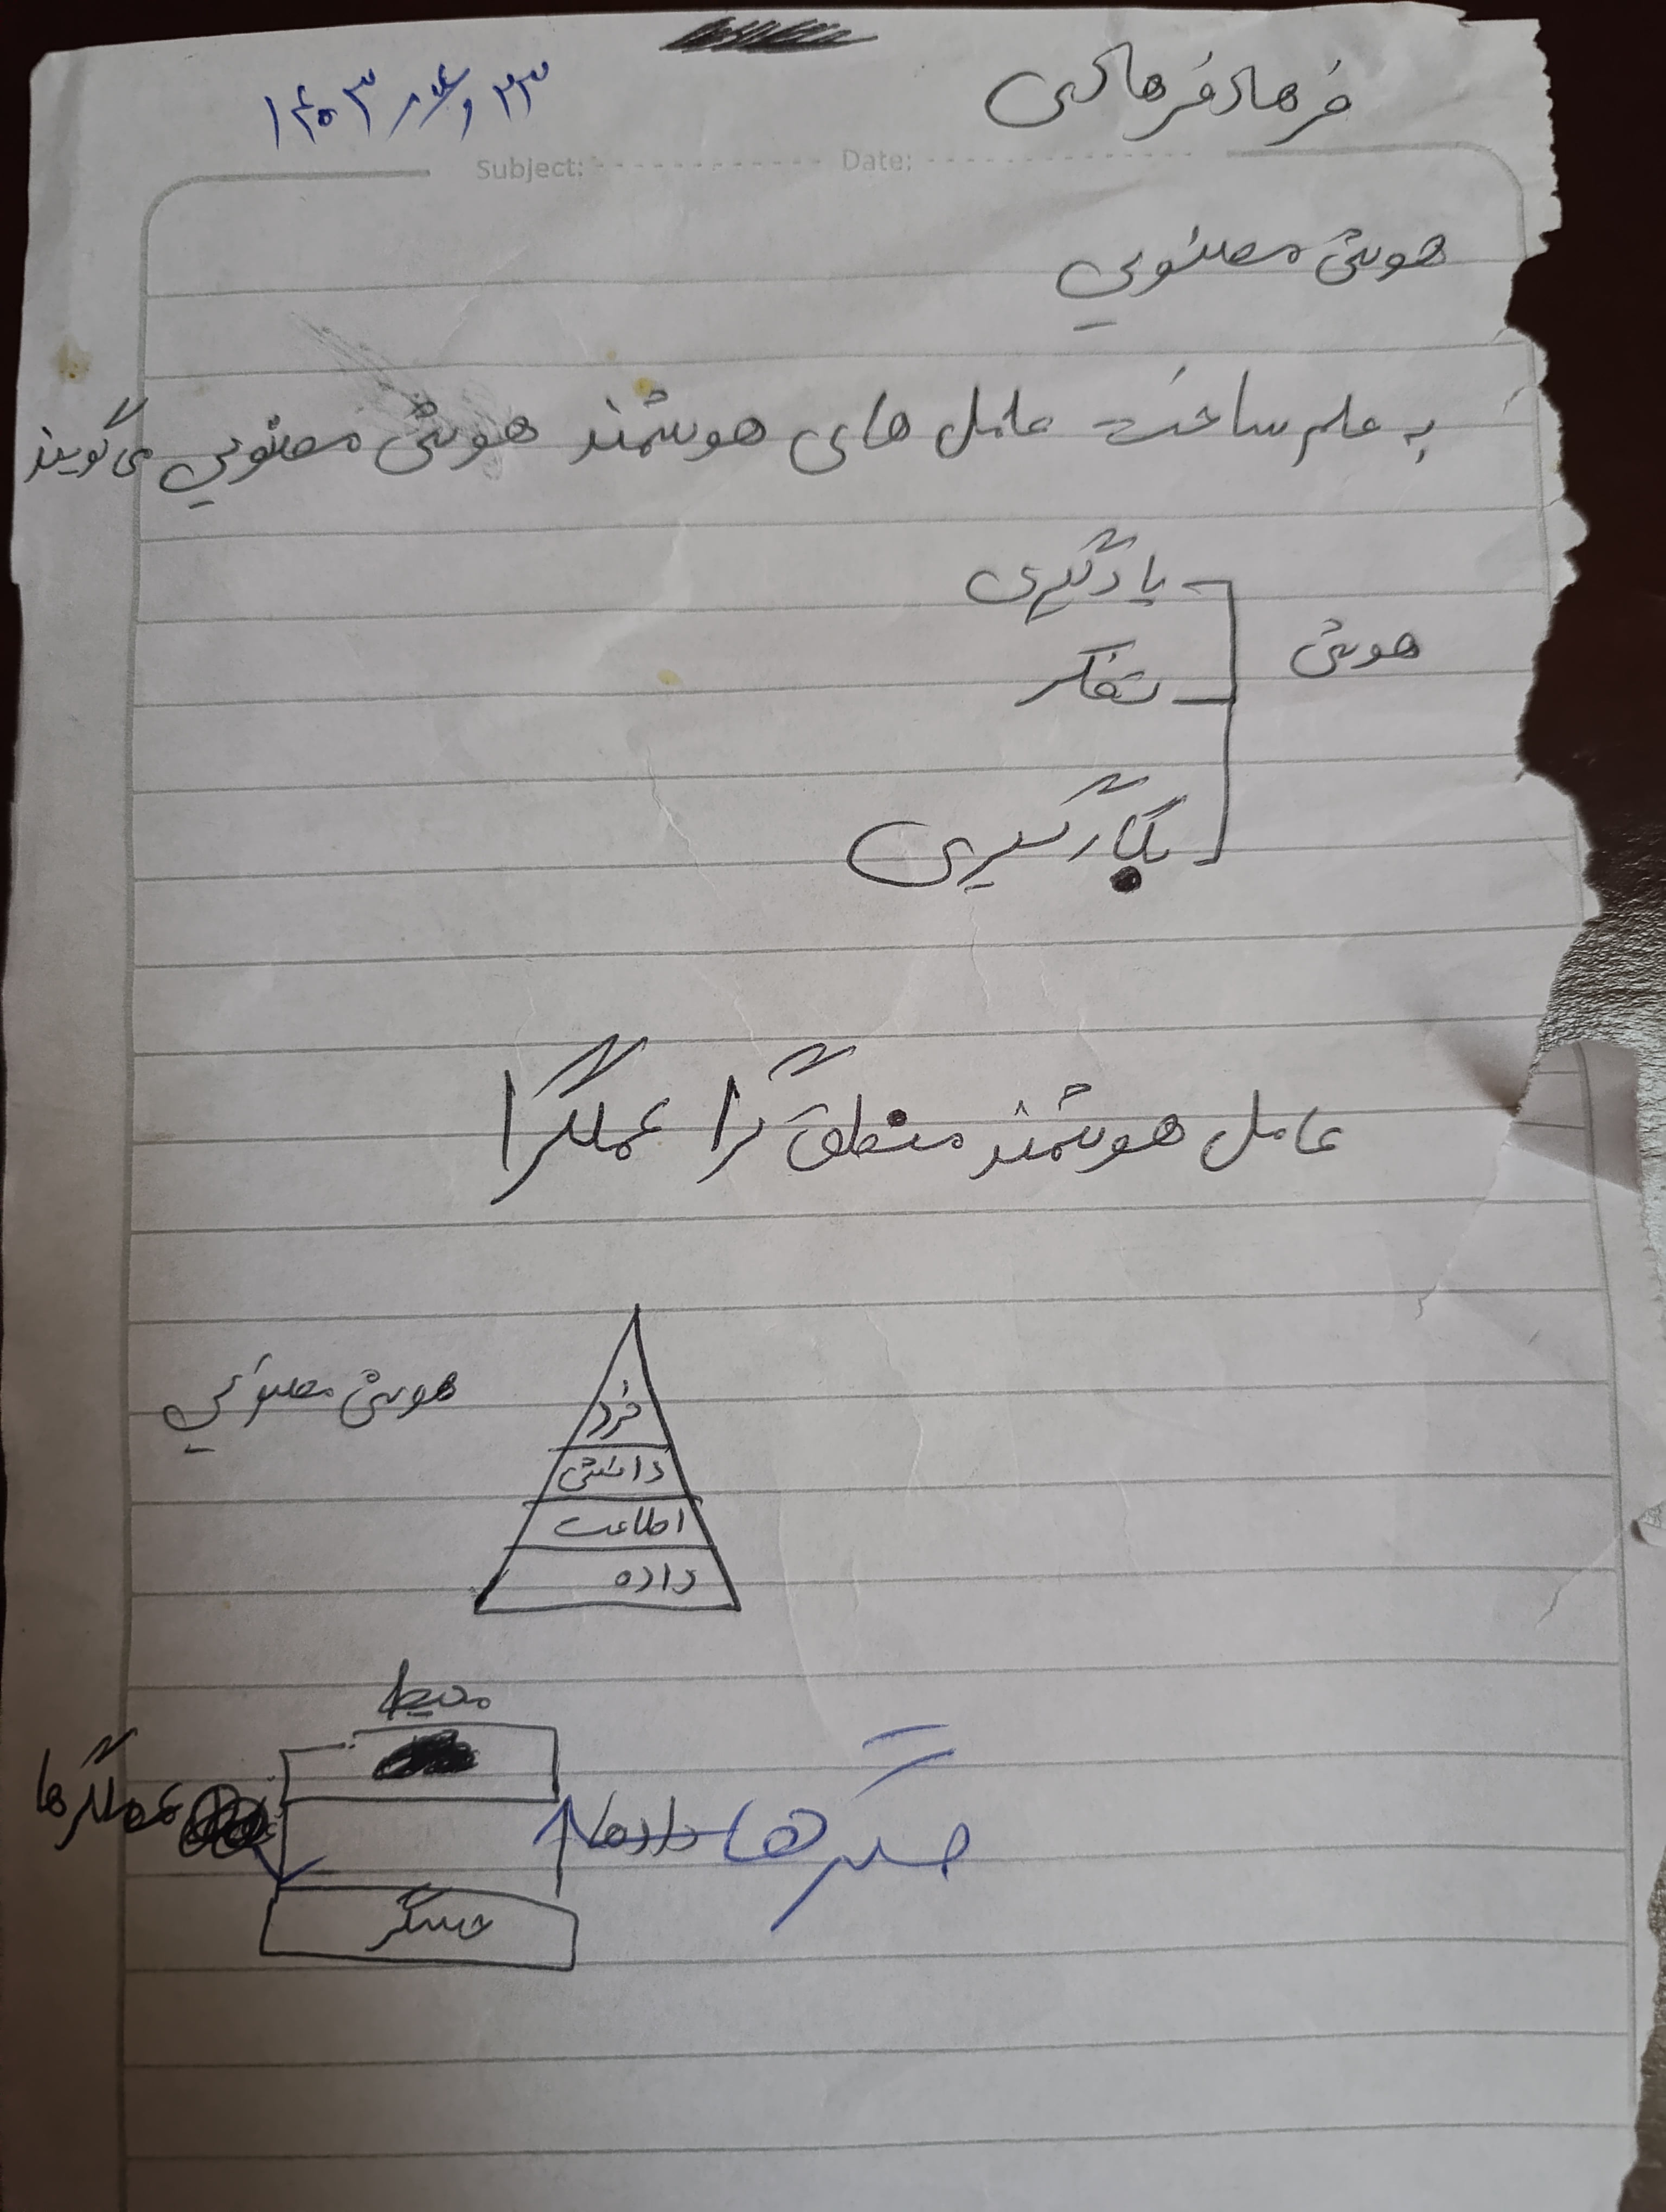 فرهاد فرهادی
۱۴۰۳
۲۳
Subject: Date:
هوش مصنوعی
به علم ساخت عامل های هوشمند هوش مصنوعی می گویند
یادگیری
هوش
تفکر
بکارگیری
عامل هوشمند منطق گرا عملگرا
هوش مصنوعی
خرد
دانش
اطلاعت
داده
محیط
عملگرها
حسگرها
حسگر